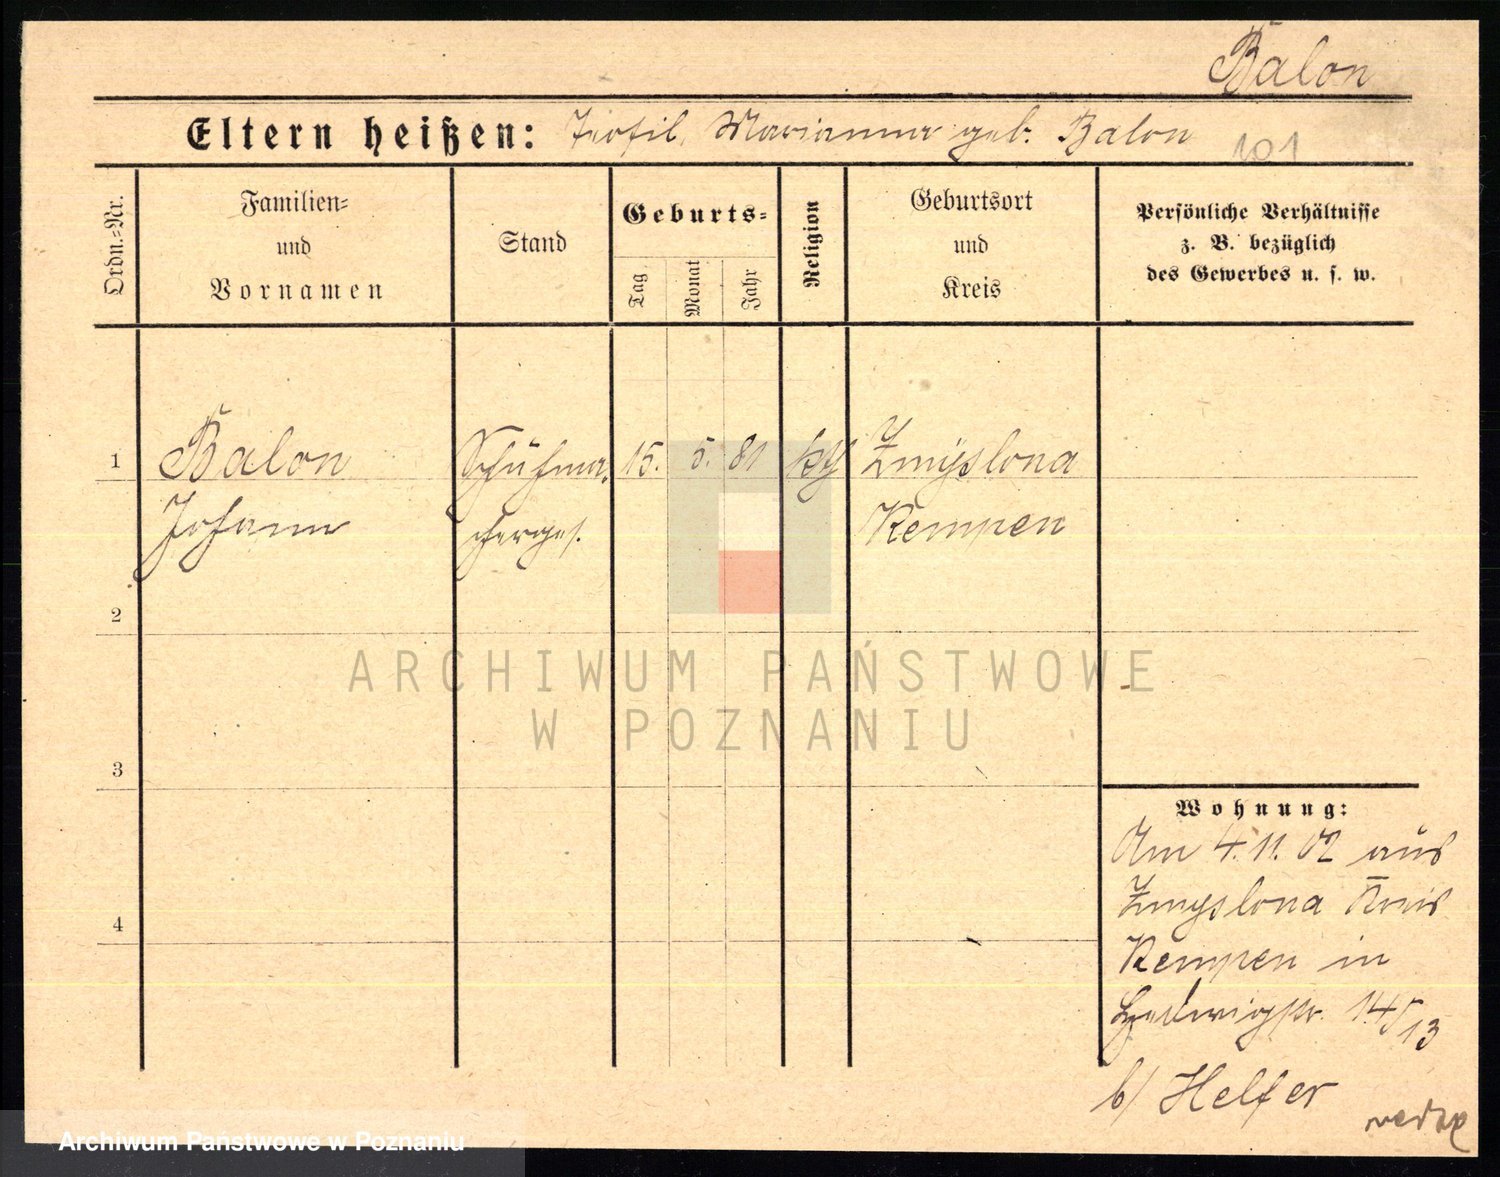 Balon
Eltern heißen: Teofil, Marianna geb. Balon
101
Ordn.-Nr.
Familien-
und
Vornamen
Stand
Geburts-
Tag
Monat
Jahr
Religion
Geburtsort
und
Kreis
Persönliche Verhältnisse
z. B. bezüglich
des Gewerbes u. s. w.
1 Balon Schuhma- 15. 5. 81 kth Zmyslona
Johann cherges. Kempen
2
3
4
ARCHIWUM PAŃSTWOWE
W POZNANIU
Wohnung:
Am 4.11.02 aus
Zmyslona Kreis
Kempen in
14/13
b/ Helfer
Archiwum Państwowe w Poznaniu